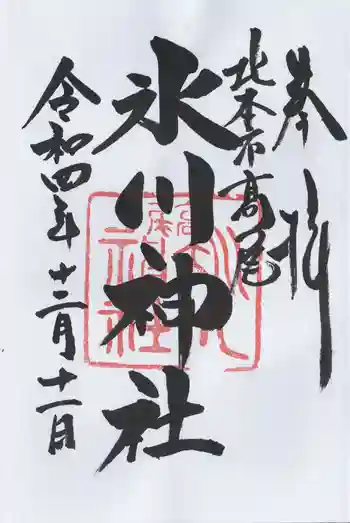 奉拝
北本市高尾
氷川神社
令和四年十二月十一日